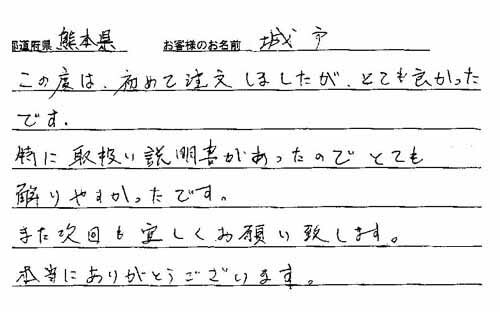 都道府県 熊本県 お客様のお名前 城戸
この度は、初めて注文しましたが、とても良かった
です.
特に取扱い説明書があったのでとても
解りやすかったです。
また次回も宜しくお願い致します。
本当にありがとうございます。